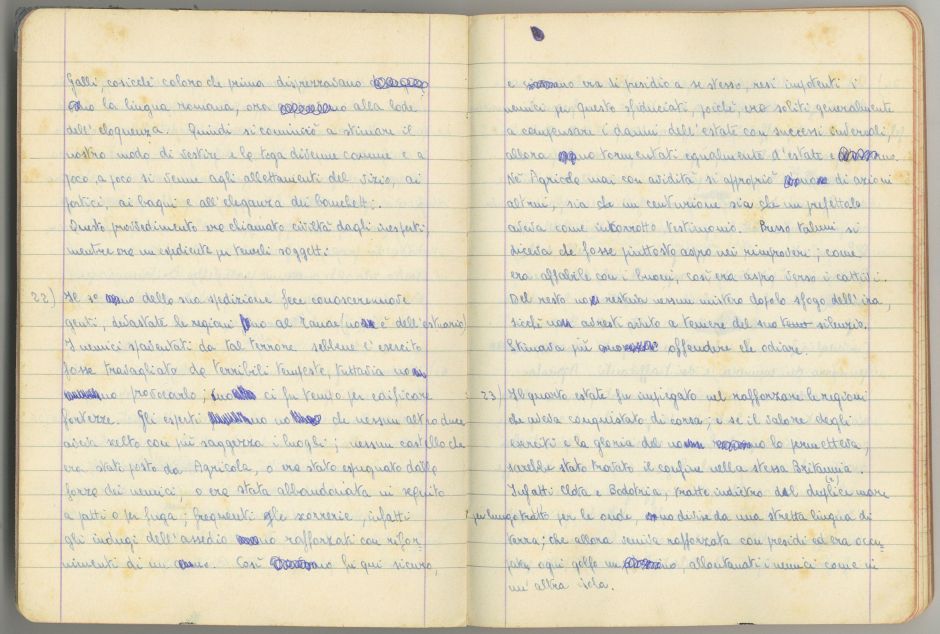 Galli, cosicché coloro che prima disprezzavano
la lingua romana, ora alla lode
dell'eloquenza. Quindi si cominciò a stimare il
nostro modo di vestire e la toga divenne comune e a
poco a poco si venne agli allettamenti del vizio, ai
portici, ai bagni e all'eleganza dei banchetti.
Questo provvedimento era chiamato civiltà dagli inesperti
mentre era un espediente per tenerli soggetti.
22) Il
dello sua spedizione fece conoscere nuove
genti, devastate le regioni fino al Tanao (nome è dell'estuario)
I nemici spaventati da tal terrore. sebbene l'esercito
fosse travagliato da terribili tempeste, tuttavia non
provocarlo; ci fu tempo per edificare
fortezze. Gli esperti che nessun altro duce
aveva scelto con più saggezza i luoghi; nessun castello che
era stato posto da Agricola, o era stato espugnato dalla
forza dei nemici, o era stata abbandonata in seguito
a patti o per fuga; frequenti le scorrerie, infatti
gli indugi dell'assedio rafforzati con rifor-
nimenti di un anno. Così lì qui sicuro,
e era di presidio a se stesso, resi impotenti i
nemici per questo sfiduciati, poiché, era soliti generalmente
a compensare i danni dell'estate con successi invernali,
allora tormentati egualmente d'estate e
Né Agricola mai con avidità si appropriò di azioni
altrui, sia che un centurione sia che un prefetto lo
aveva come incorrotto testimonio. Presso taluni si
diceva che fosse piuttosto aspro nei rimproveri; come
era affabile con i buoni, così era aspro verso i cattivi.
Del resto non restava nessun mistero dopo lo sfogo dell'ira,
sicché non avresti avuto a temere del suo silenzio.
Stimava più offendere che odiare.
23) Il quarto estate fu impiegato nel rafforzare le regioni
che aveva conquistato di corsa; e se il valore degli
eserciti e la gloria del lo permetteva,
sarebbe stato trovato il confine nella stessa Britannia.
Infatti Clota e Bodotria, tratte indietro dal duplice mare
per lungo tratto per le onde, divise da una stretta lingua di
terra; che allora veniva rafforzata con presidi ed era occu-
pato ogni golfo, allontanati i nemici come in
un'altra isola.